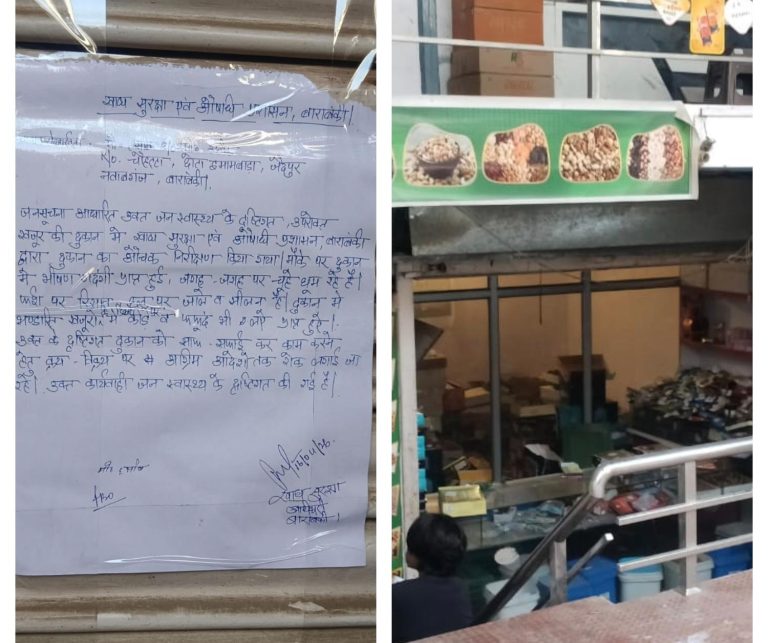 खाद्य सुरक्षा एवं औषधि प्रशासन, बाराबंकी।
No. चौहट्टा, छोटा इमामबाड़ा, जैदपुर
नवाबगंज, बाराबंकी,
जनसूचना आधारित उक्त जन स्वास्थ्य के दृष्टिगत, उपरोक्त
खजूर की दुकान में खाद्य सुरक्षा एवं औषधि प्रशासन, बाराबंकी
द्वारा दुकान का औचक निरीक्षण किया गया। मौके पर दुकान
में भीषण गंदगी प्राप्त हुई, जगह-जगह पर चूहे घूम रहे हैं।
फर्श पर पर जाले व सीलन है। दुकान में
भण्डारित खजूरों में कीड़े व फफूंद भी प्राप्त हुये।
उक्त के दृष्टिगत दुकान को साफ-सफाई कर काम करने
हेतु क्रय-विक्रय पर अग्रिम आदेशों तक रोक लगाई जा
रही है। उक्त कार्यवाही जन स्वास्थ्य के दृष्टिगत की गई है।
खाद्य सुरक्षा
अधिकारी
बाराबंकी।